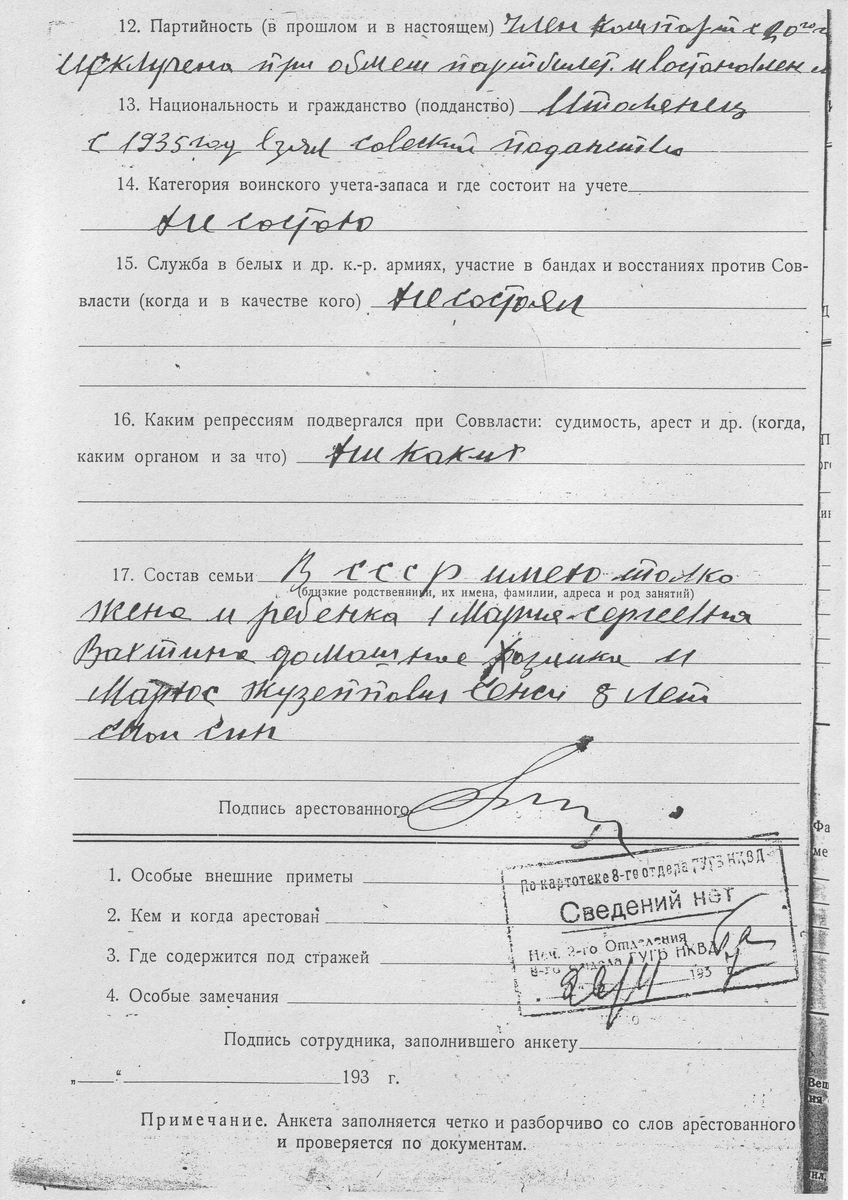 12. Партийность (в прошлом и в настоящем) Член компарт с 20го г
Исключена при обмен партбилет. и востановлен
13. Национальность и гражданство (подданство) Итальянец
с 1935 год взял совеский поданство
14. Категория воинского учета-запаса и где состоит на учете
не состою
15. Служба в белых и др. к.-р. армиях, участие в бандах и восстаниях против Сов-
власти (когда и в качестве кого) не состоял
16. Каким репрессиям подвергался при Соввласти: судимость, арест и др. (когда,
каким органом и за что) ни каких
17. Состав семьи В СССР имею толко
(близкие родственники, их имена, фамилии, адреса и род занятий)
жена и ребенка 1 Мария Сергеевна
Вахтина домашное хозяика и
Мариос Жузеппович Сенси 8 лет
свои син
Подпись арестованного
1. Особые внешние приметы
2. Кем и когда арестован
3. Где содержится под стражей
4. Особые замечания
По картотеке 8-го отдела ГУГБ НКВД
Сведений нет
Нач. 2-го Отделения
8-го отдела ГУГБ НКВД
193 7
Подпись сотрудника, заполнившего анкету
„ “ 193 г.
Примечание. Анкета заполняется четко и разборчиво со слов арестованного
и проверяется по документам.